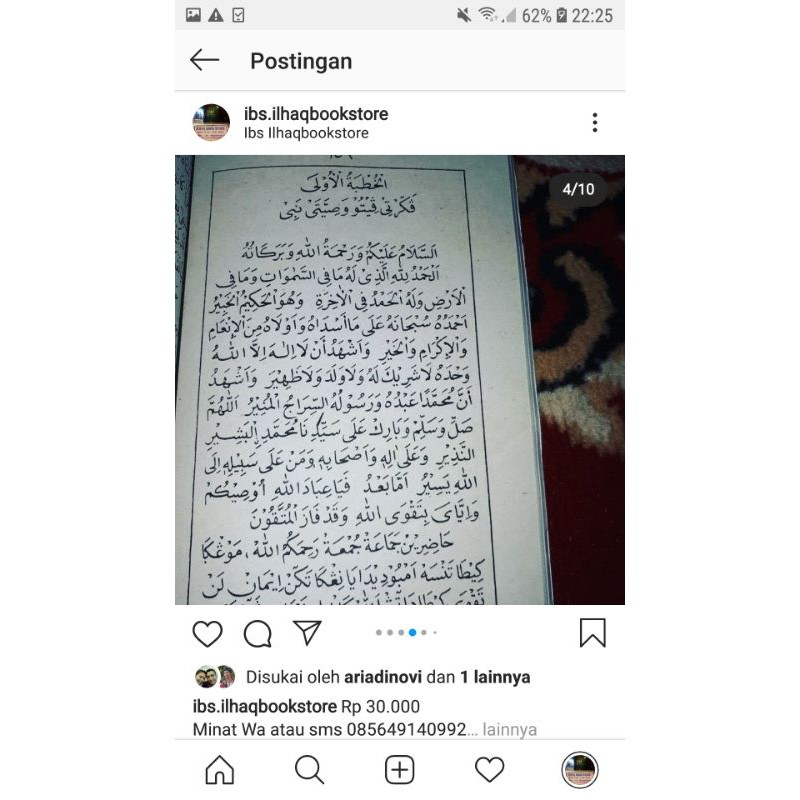 62% 22:25
Postingan
ibs.ilhaqbookstore
Ibs Ilhaqbookstore
4/10
اَلْخُطْبَةُ الْأُوْلَى
فَكَرْتِى فِيْتُوْ وَصِيَّتَى نَبِى
اَلسَّلَامُ عَلَيْكُمْ وَرَحْمَةُ اللهِ وَبَرَكَاتُهُ
اَلْحَمْدُ لِلّٰهِ الَّذِىْ لَهُ مَا فِى السَّمٰوَاتِ وَمَا فِى
الْاَرْضِ وَلَهُ الْحَمْدُ فِى الْاٰخِرَةِ وَهُوَ الْحَكِيْمُ الْخَبِيْرُ
اَحْمَدُهُ سُبْحَانَهُ عَلَى مَا اَسْدَاهُ وَاَوْلَاهُ مِنَ الْاِنْعَامِ
وَالْاِكْرَامِ وَالْخَيْرِ وَاَشْهَدُ اَنْ لَا اِلٰهَ اِلَّا اللهُ
وَحْدَهُ لَا شَرِيْكَ لَهُ وَلَا وَلَدَ وَلَا ظَهِيْرَ وَاَشْهَدُ
اَنَّ مُحَمَّدًا عَبْدُهُ وَرَسُوْلُهُ السِّرَاجُ الْمُنِيْرُ اَللّٰهُمَّ
صَلِّ وَسَلِّمْ وَبَارِكْ عَلَى سَيِّدِنَا مُحَمَّدٍ الْبَشِيْرِ
النَّذِيْرِ وَعَلَى اٰلِهِ وَاَصْحَابِهِ وَمَنْ عَلَى سَبِيْلِهِ اِلَى
اللهِ يَسِيْرُ اَمَّا بَعْدُ فَيَا عِبَادَ اللهِ اُوْصِيْكُمْ
وَاِيَّاىَ بِتَقْوَى اللهِ وَقَدْ فَازَ الْمُتَّقُوْنَ
حَاضِرِيْنْ جَمَاعَةْ جُمْعَةْ رَحِمَكُمُ اللهُ، مَوْڠْكَا
كِيْطَا تَنْسَهْ اَمْبُوْدِيْدَايَا نِڠْكَاتَكَنْ اِيْمَانْ لَنْ
Disukai oleh ariadinovi dan 1 lainnya
ibs.ilhaqbookstore Rp 30.000
Minat Wa atau sms 085649140992... lainnya